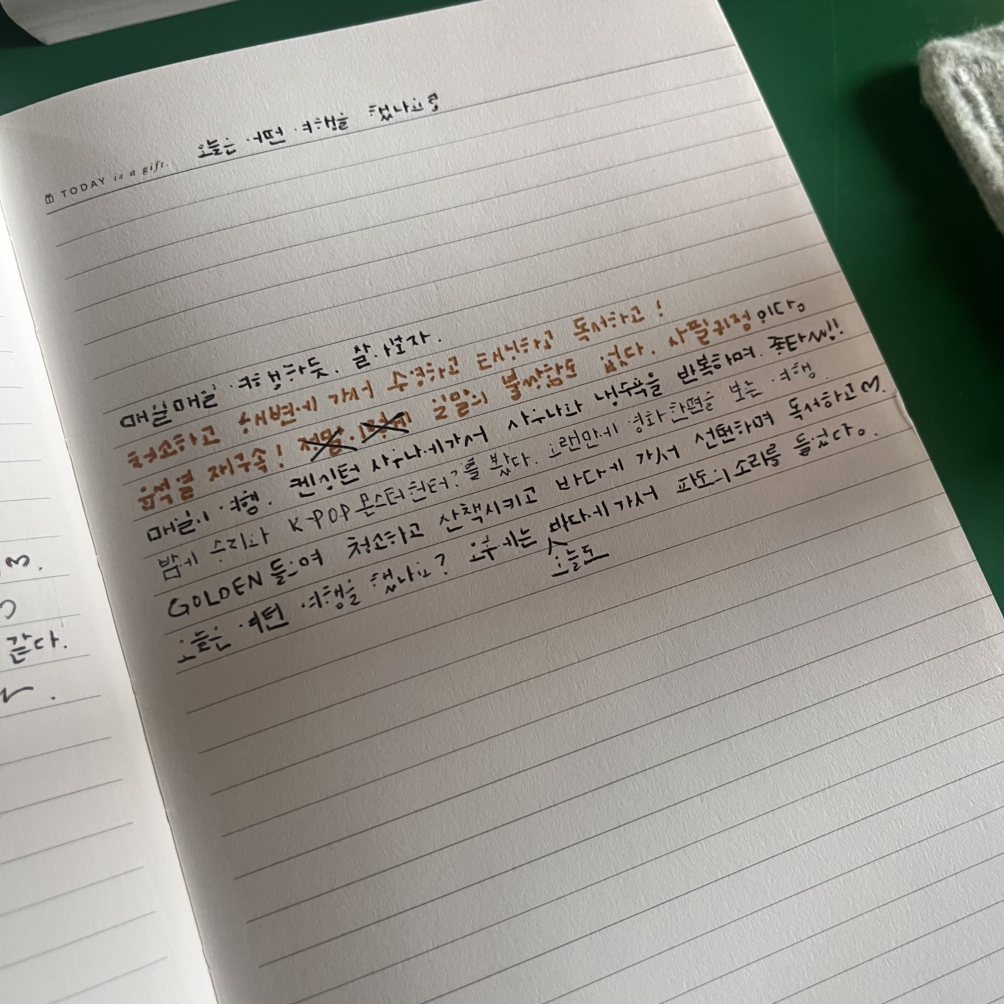 오늘은 어떤 여행을 했나요?
TODAY is a gift.
매일매일 여행하듯. 살아보자.
청소하고 해변에 가서 수영하고 태닝하고 독서하고!
윤석열 재구속! 일말의 불쌍함도 없다. 사필귀정이다。
매일이 여행. 켄싱턴 사우나에가서 사우나와 냉수욕을 반복하며. 좋다 씨!!
밤에 수리와 K-POP 몬스터헌터?를 봤다. 오랜만에 영화한편을 보는 여행
GOLDEN 들으며 청소하고 산책시키고 바다에 가서 선펀하며 독서하고 M.
오늘은 어떤 여행을 했나요? 오후에는 바다에 가서 파도의 소리를 들었다。
오늘도
m.
같다.